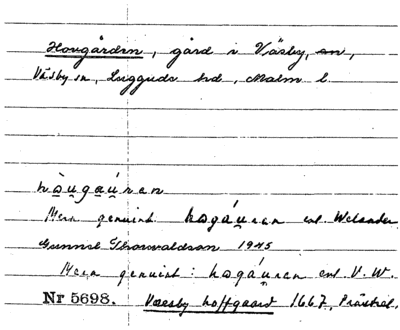 Hovgården, gård i Väsby, sn,
Väsby sn, Luggude hd, Malm l.
hòu̯gáu̯ren
Mera genuint hogáu̯ren enl. Welander
Gunnel Thorvaldson 1945
Mera genuint: hogáu̯ren enl. V. W.
Nr 5698. Væsby hoffgaard 1667, Prästrel.